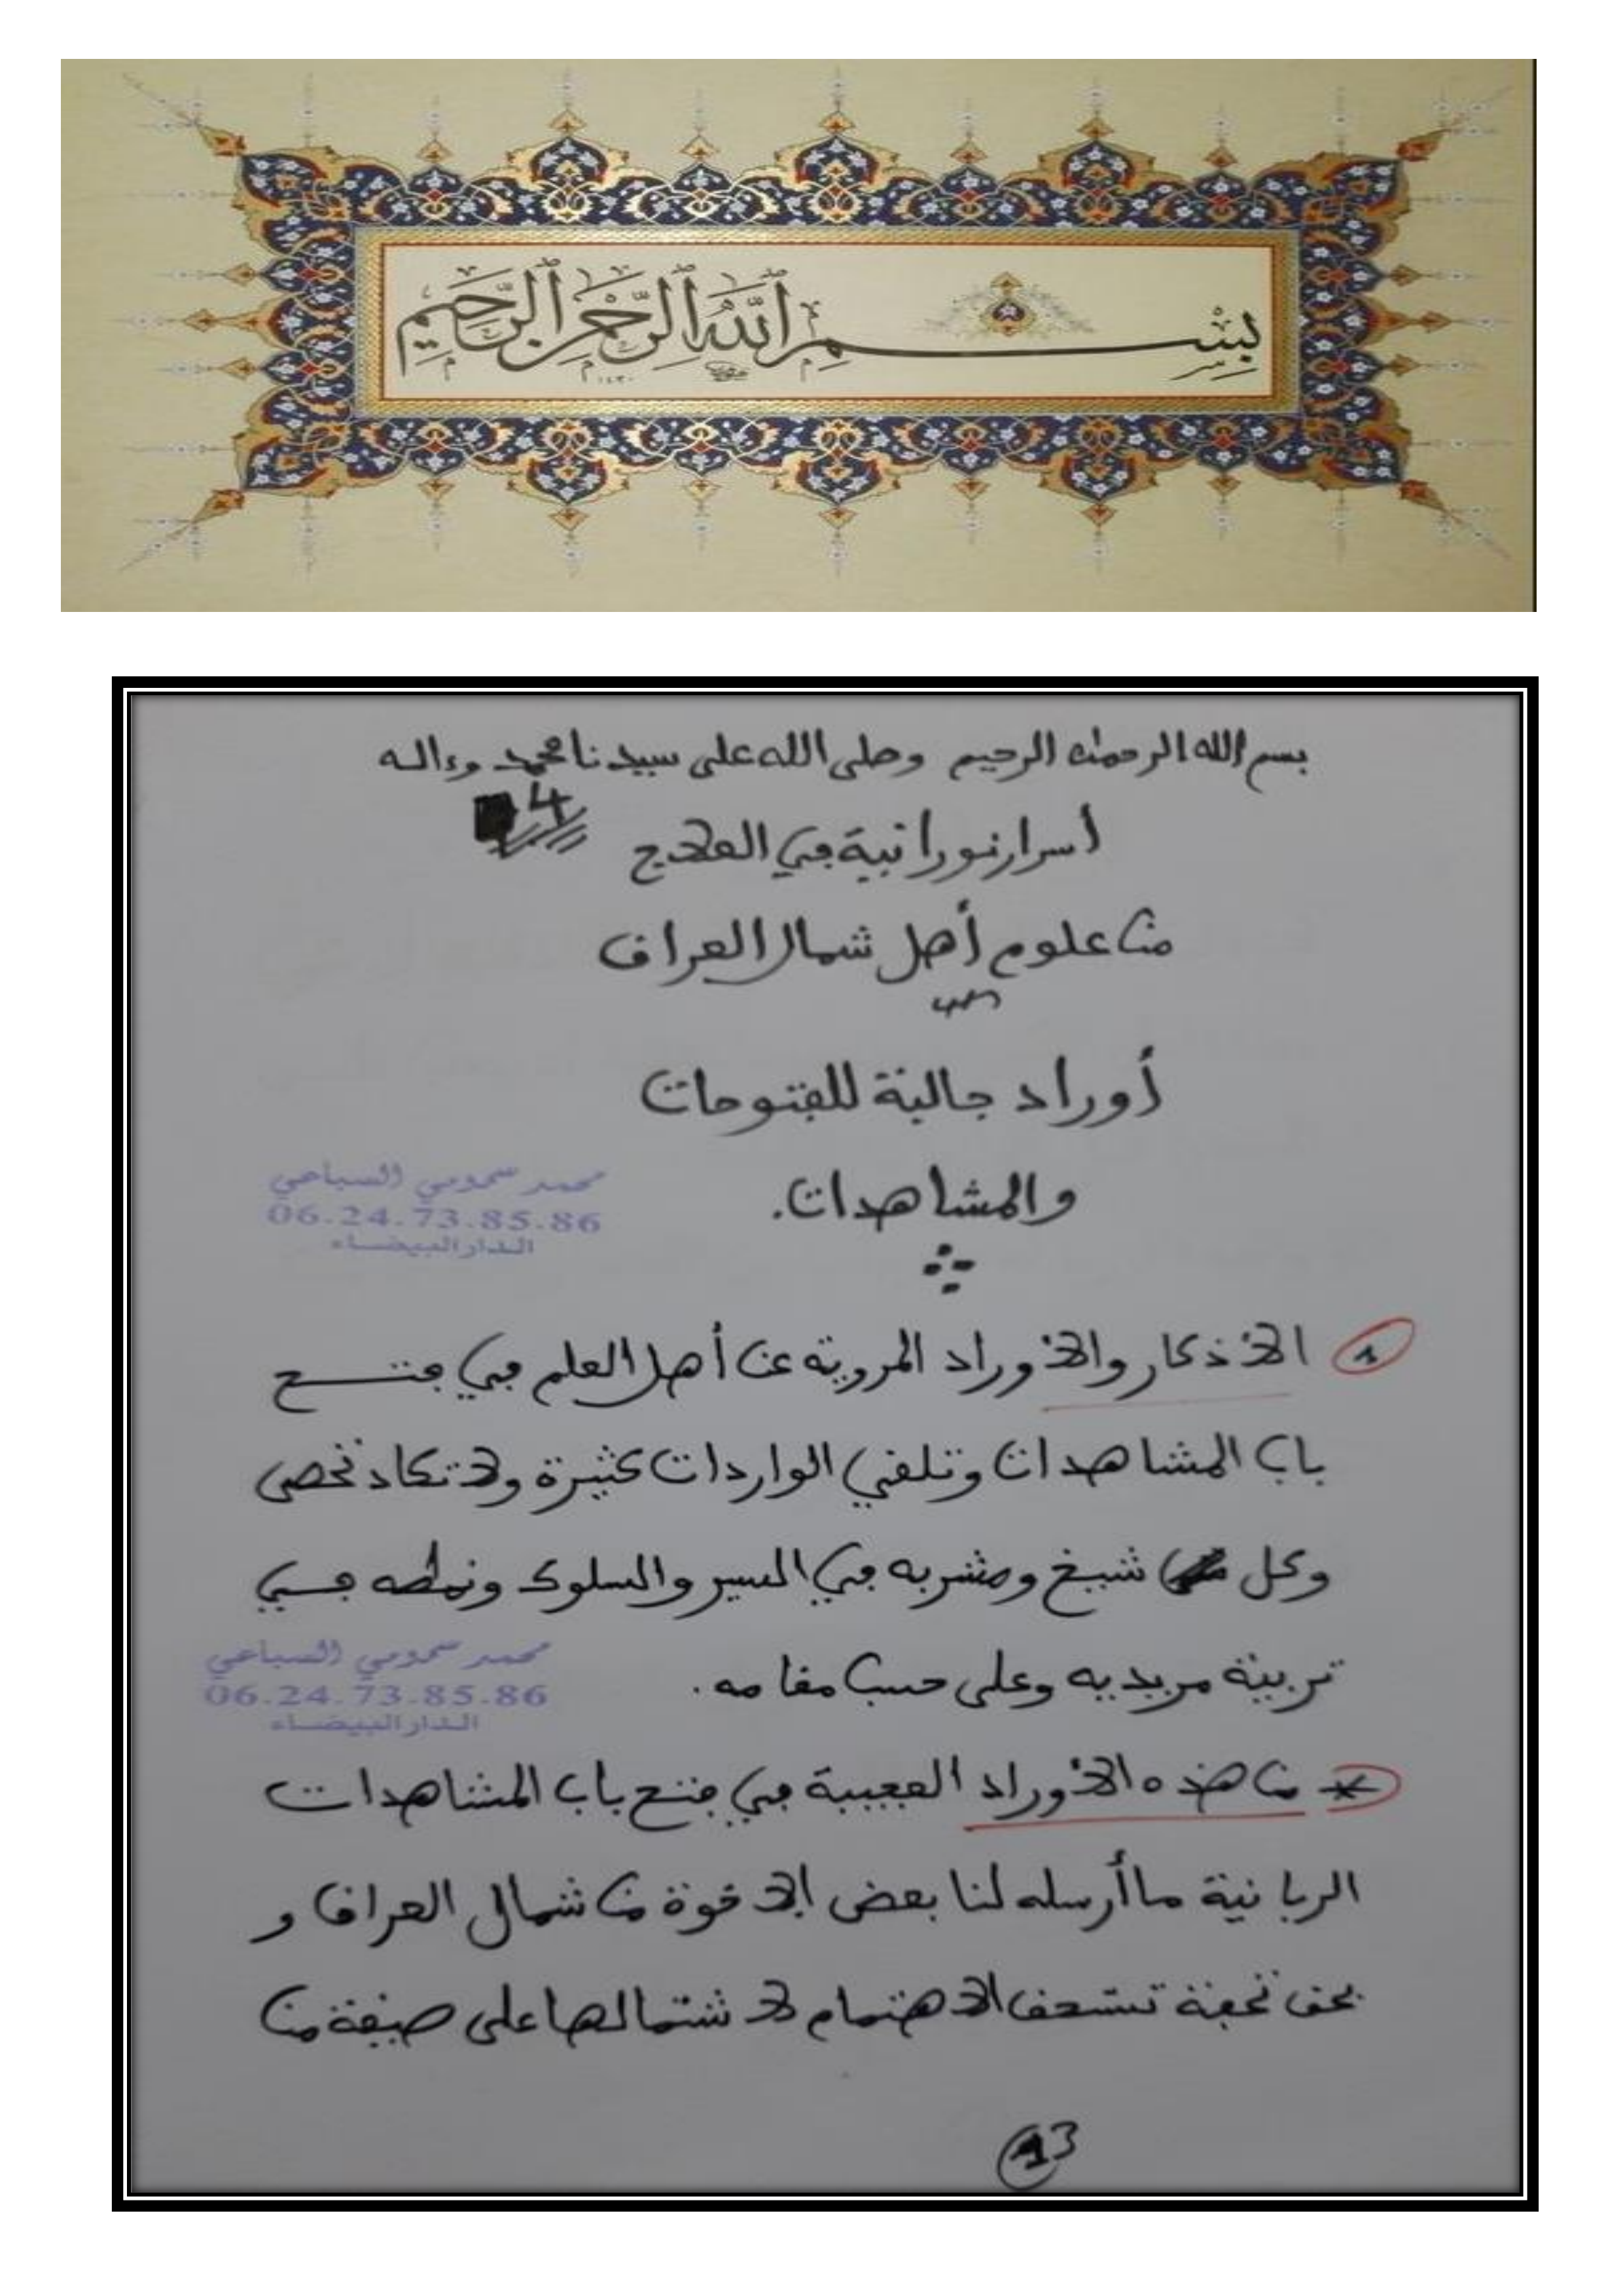 بِسْمِ ٱللَّهِ ٱلرَّحْمَٰنِ ٱلرَّحِيمِ
١٤٣٠
بسم الله الرحمان الرحيم وصلى الله على سيدنا محمد وءاله
4
أسرار نورانية في العلاج
من علوم أهل شمال العراق
أوراد جالبة للفتوحات
والمشاهدات.
محمد سحمومي السباعي
06.24.73.85.86
الدار البيضاء
1 الأذكار والأوراد المروية عن أهل العلم في فتح
باب المشاهدات وتلقي الواردات كثيرة ولا تكاد تحصى
وكل شيخ ومشربه في السير والسلوك ونمطه في
تربية مريديه وعلى حسب مقامه.
محمد سحمومي السباعي
06.24.73.85.86
الدار البيضاء
* من هذه الأوراد العجيبة في فتح باب المشاهدات
الربانية ما أرسله لنا بعض الإخوة من شمال العراق و
بحق تحفة تستحق الاهتمام لاشتمالها على صيغة من
13